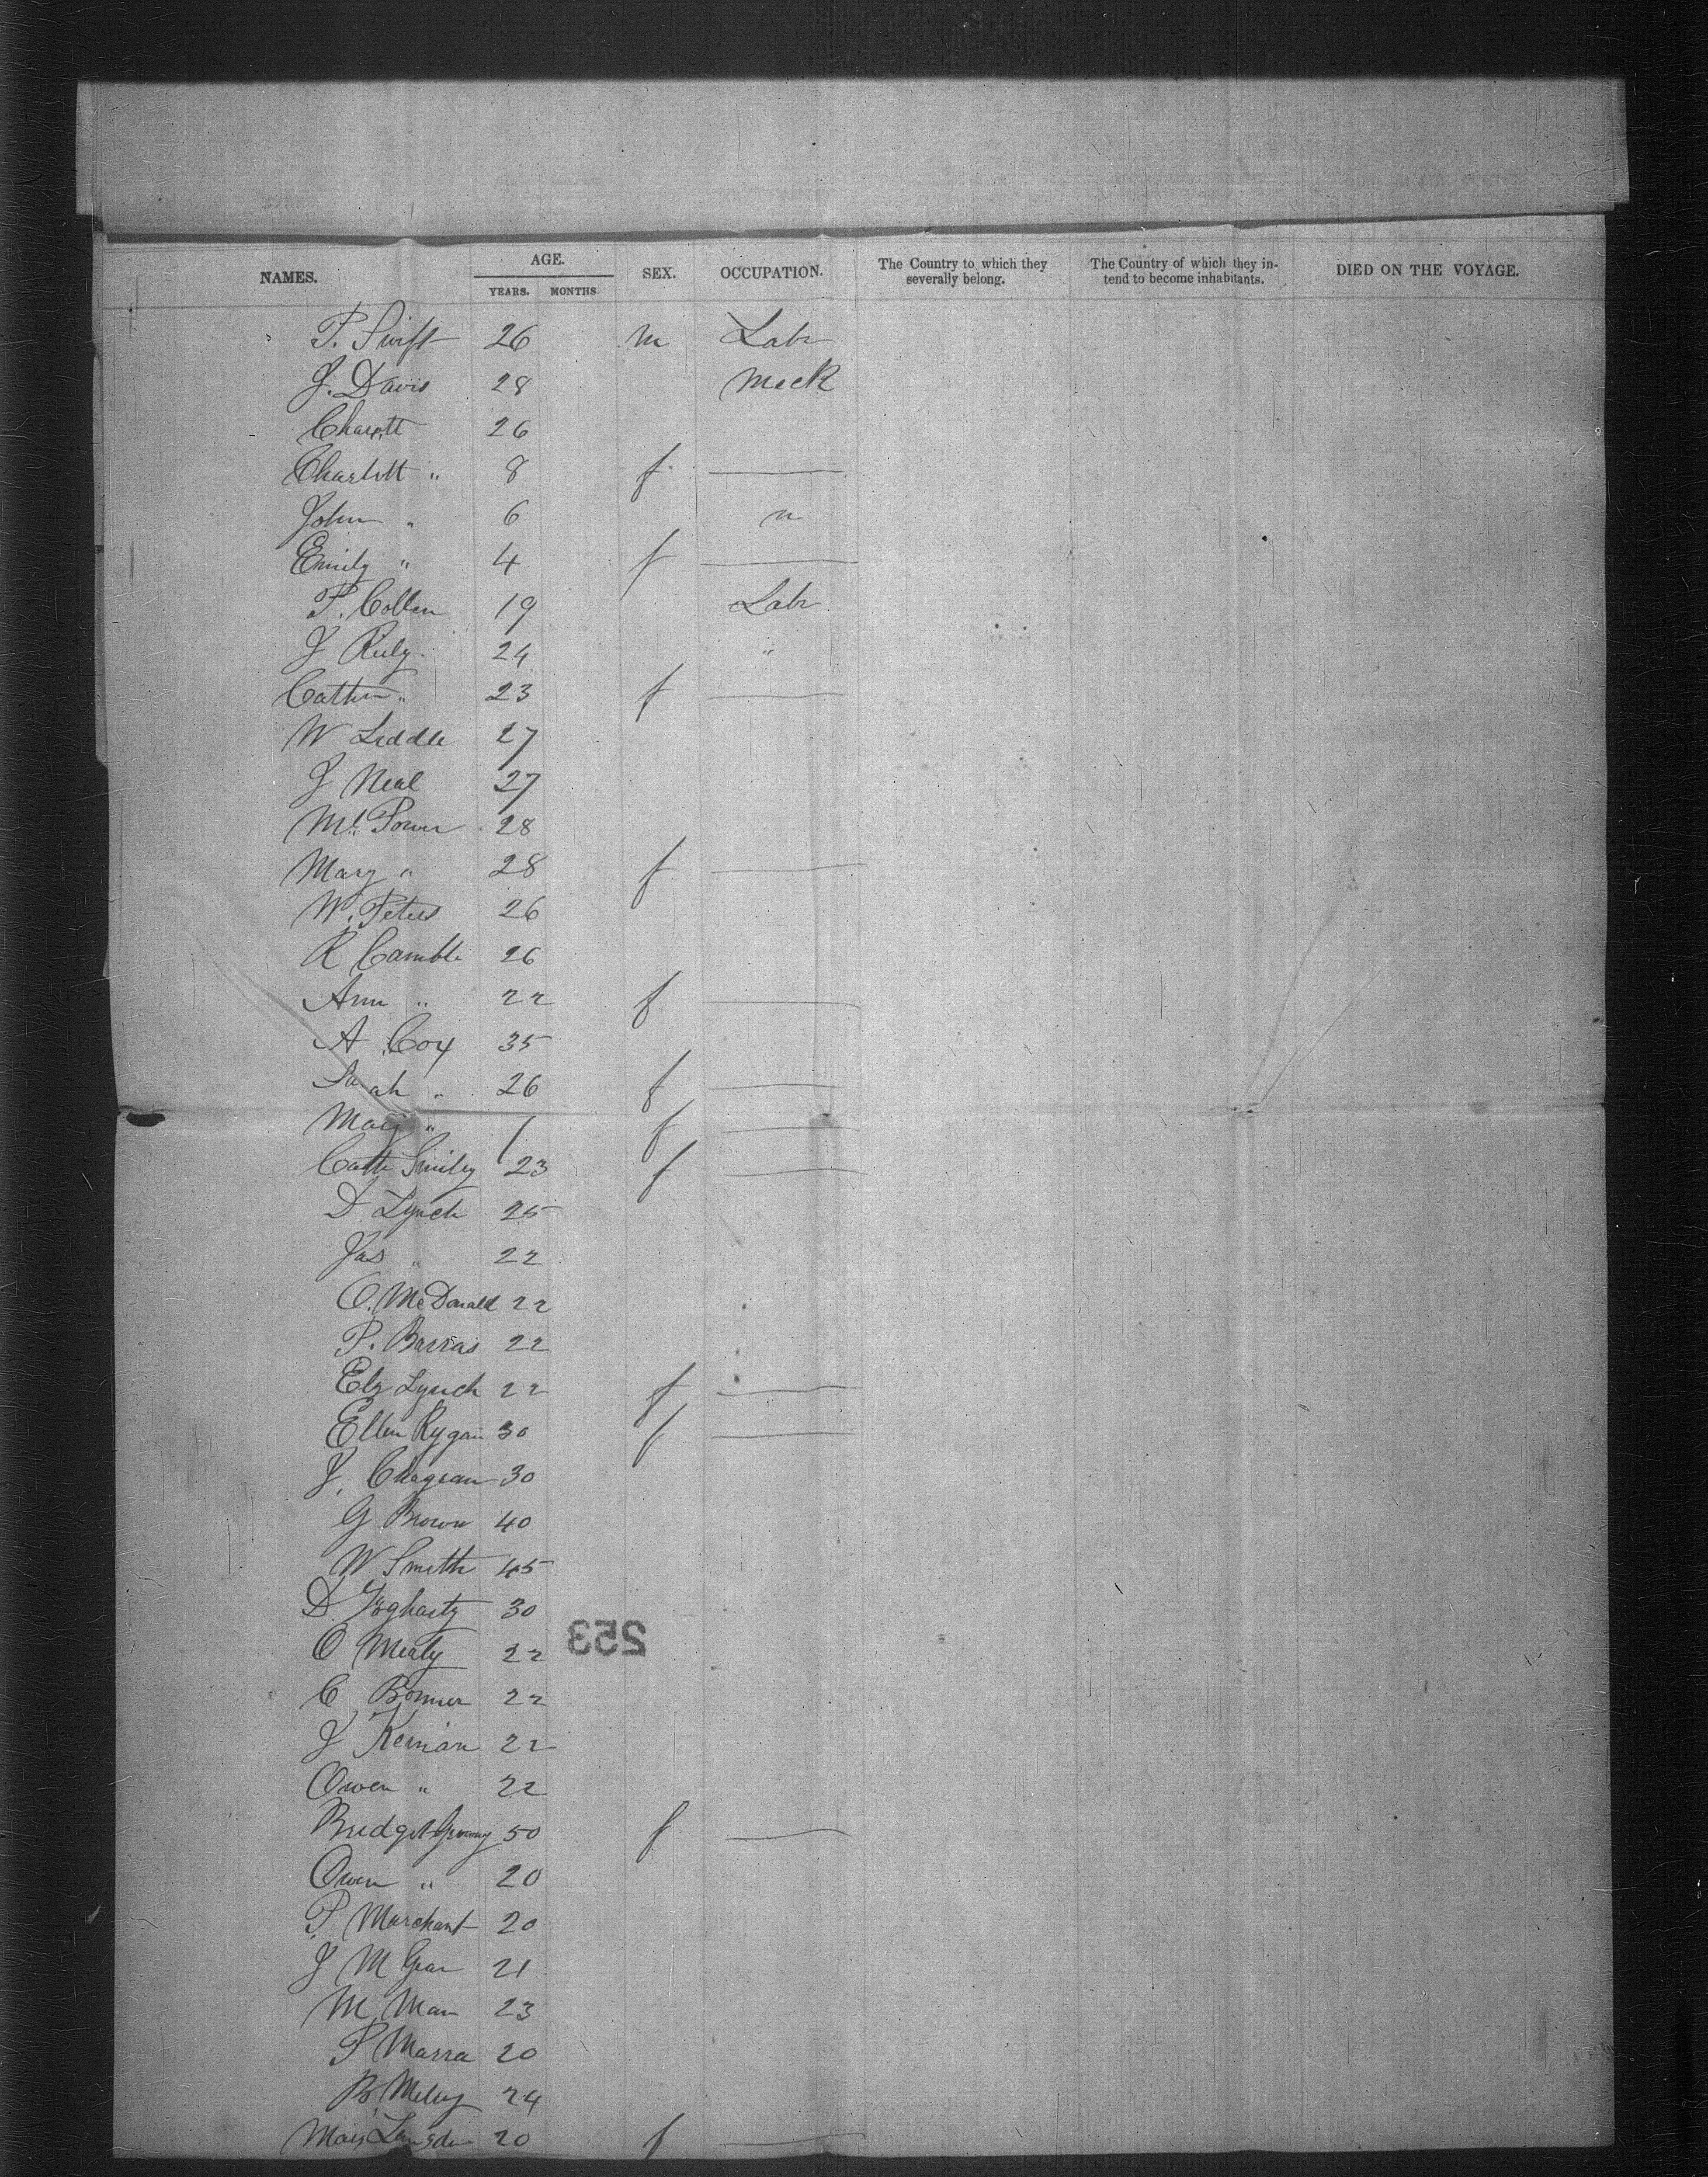 NAMES. AGE. SEX. OCCUPATION. The Country to which they severally belong. The Country of which they intend to become inhabitants. DIED ON THE VOYAGE.
YEARS. MONTHS.
P. Swift 26 m Labr
J. Davis 28 Mech
26
Charlott " 8 f
John " 6 "
Emily " 4 f
P. Collen 19 Labr
J Rily 24 "
Cathn " 23 f
W Liddle 27
J Neal 27
Ml. Power 28
Mary " 28 f
W. Peters 26
R Camble 26
Ann " 22 f
A Cox 35
Sarah " 26 f
Mary " 1 f
Cath Smiley 23 f
D Lynch 25
Jas " 22
O. McDonald 22
P. Barras 22
Elz Lynch 22 f
Ellen Rygan 30 f
J. 30
G Brown 40
W Smith 45
D Fogharty 30
253
O Mealy 22
C Bonner 22
J Kernan 22
Owen " 22
Bridget 50 f
Owen " 20
P. Marchant 20
J M Gran 21
M. Man 23
P Marra 20
B. 24
Mary 20 f